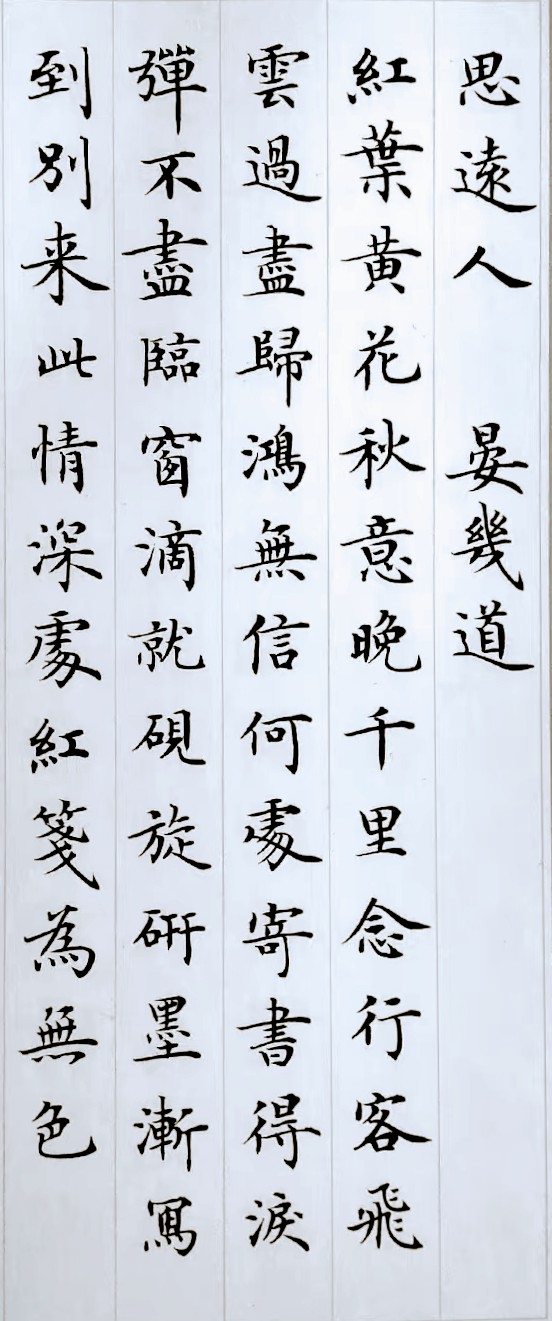 思遠人 晏幾道
紅葉黄花秋意晚千里念行客飛
雲過盡歸鴻無信何處寄書得淚
彈不盡臨窗滴就硯旋研墨漸寫
到別来此情深處紅箋為無色